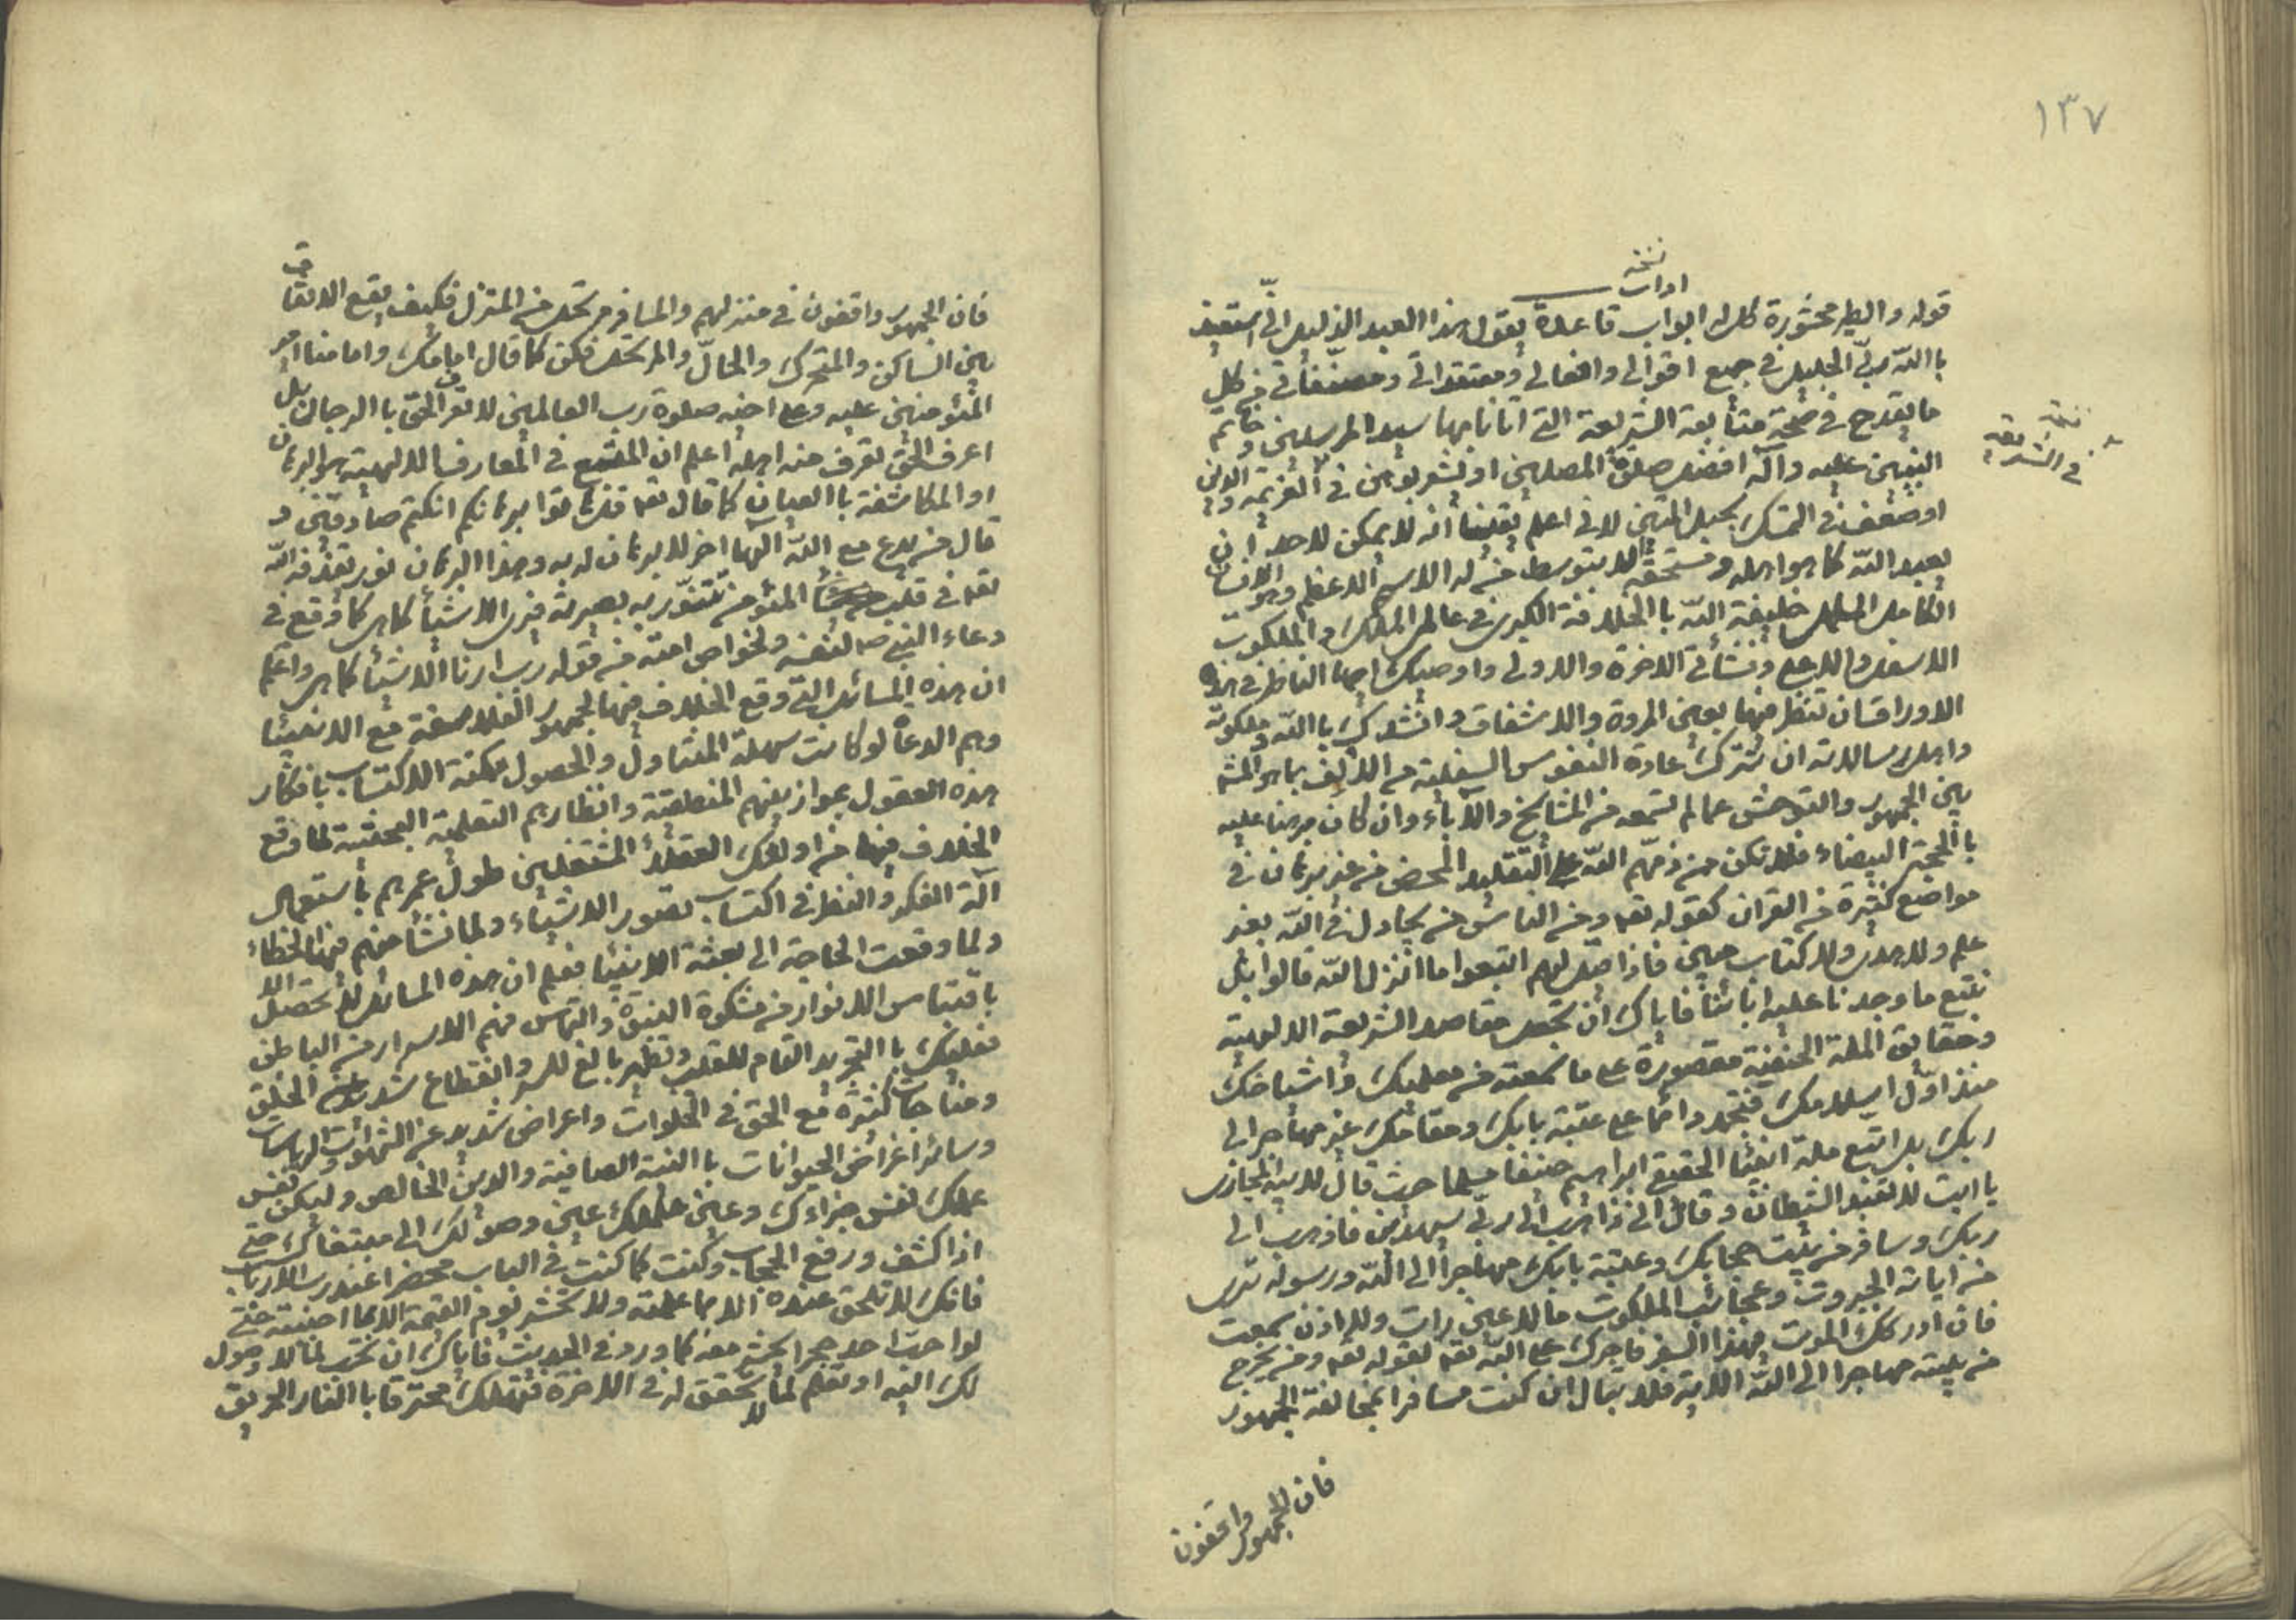 ١٣٧
نسخه
اواب
قوله والطير محشورة كل له ابواب قاعدة يقول هذا العبد الذليل اني استعيذ
باالله ربي الجليل في جميع اقوالي وافعالي ومعتقداتي ومصنفاتي من كل
ما يقدح في صحة متابعة الشريعة التي اتانا بها سيد المرسلين وخاتم
النبيين عليه وآله افضل صلوة المصلين او يشعر بوهن في العزيمة والدين
او ضعف في التمسك بحبل المتين لاني اعلم يقينا انه لا يمكن لاحد ان
يعبد الله كما هو اهله ومستحقه الا بتوسط من له الاسم الاعظم وهو الانسان
الكامل المكمل خليفة الله باالخلافة الكبرى في عالمي الملك والملكوت
الاسفل والاعلى ونشأتي الاخرة والاولى واوصيك ايها الناظر في هذه
الاوراق ان تنظر فيها بعين المروة والاشفاق وانشدك باالله وملكوته
واهل رسالاته ان تترك عادة النفوس السفلية من الالف بما هو المشهور
بين الجمهور والتوحش عما لم تسمعه من المشايخ والآباء وان كان مبرهنا عليه
باالحجة البيضاء فلا تكن ممن ذمهم الله على التقليد المحض من غير برهان في
مواضع كثيرة من القران كقوله تعه ومن الناس من يجادل في الله بغير
علم ولا هدى ولا كتاب مبين فاذا قيل لهم اتبعوا ما انزل الله قالوا بل
نتبع ما وجدنا عليه ابائنا فاياك ان تجعل مقاصد الشريعة الالهية
وحقايق الملة الحنيفية مقصورة على ما سمعته من معلميك واشياخك
منذ اول اسلامك فتجمد دائما على عتبة بابك ومقامك غير مهاجر الى
ربك بل اتبع ملة ابينا الحقيقي ابراهيم حنيفا مسلما حيث قال لابيه المجازى
يا ابت لا تعبد الشيطان وقال اني ذاهب الى ربي سيهدين فاذهب الى
ربك وسافر من بيت حجابك وعتبة بابك مهاجرا الى الله ورسوله ترى
من ايات الجبروت وعجائب الملكوت ما لا عين رات ولا اذن سمعت
فان ادركك الموت بهذا السفر فاجرك على الله تعه لقوله تعه ومن يخرج
من بيته مهاجرا الى الله الاية فلا تبال ان كنت مسافرا بمخالفة الجمهور
فان الجمهور واقفون
نسخه
في الشريعه
فان الجمهور واقفون في منزلهم والمسافر مرتحل من المنزل فكيف يقع الاتفاق
بين الساكن والمتحرك والحال والمرتحل فكن كما قال امامك وامامنا امير
المؤمنين عليه وعلى اخيه صلوة رب العالمين لا تعرف الحق باالرجال بل
اعرف الحق تعرف منه اهله اعلم ان المتبع في المعارف الالهية هو البرهان
او المكاشفة باالعيان كما قال تعه قل هاتوا برهانكم ان كنتم صادقين و
قال من يدع مع الله الها اخر لا برهان له به وهذا البرهان نور يقذفه الله
تعه في قلب المؤمن تتنور به بصيرته فيرى الاشياء كما هي كما وقع في
دعاء النبي صه لنفسه ولخواص امته من قوله رب ارنا الاشياء كما هي واعلم
ان هذه المسائل التي وقع الخلاف فيها لجمهور الفلاسفة مع الانبياء
وهم الدعاة لو كانت سهلة المتناول والحصول ممكنة الاكتساب بافكار
هذه العقول بموازينهم المنطقية وانظارهم التعليمية البحثية لما وقع
الخلاف فيها من اولئك العقلاء المشتغلين طول عمرهم باستعمال
آلة الفكر والنظر في اكتساب تصور الاشياء ولما نشأ منهم فيها الخطاء
ولما وقعت الحاجة الى بعثة الانبياء فعلم ان هذه المسائل لا تحصل الا
باقتباس الانوار من مشكوة النبوة والتماس فهم الاسرار من الباطن
فعليك باالتجريد التام للقلب وتطهير بالغ للسر وانقطاع شديد عن الخلق
ومناجات كثيره مع الحق في الخلوات واعراض شديد عن الشهوات والرياسات
وسائر اغراض الحيوانات باالنية الصافية والدين الخالص وليكن نفس
عملك نفس جزاءك وعين علمك عين وصولك الى مبتغاك حتى
اذا كشف ورفع الحجاب وكنت كما كنت في الباب محضرا عند رب الارباب
فانك لا تلحق عنده الا بما علمته ولا تحشر يوم القيمة الا بما احببته حتى
لو احب احد حجرا يحشر معه كما ورد في الحديث فاياك ان تحب لما لا وصول
لك اليه او تعلم لما لا تحقق له في الاخرة فتهلك محترقا باالنار الحريق